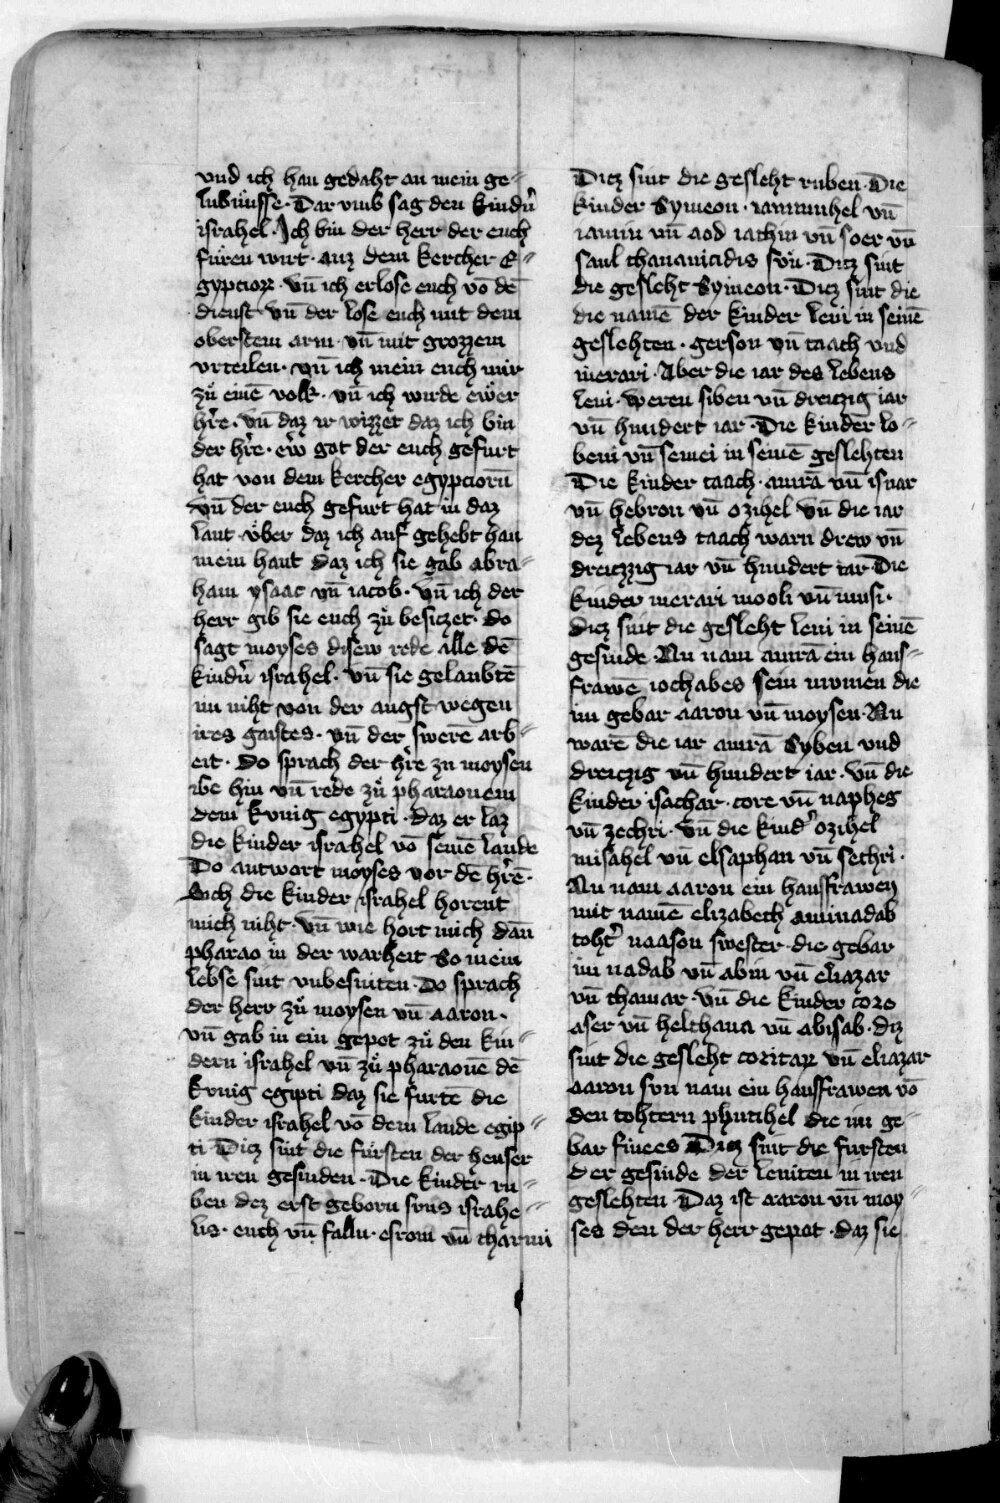 vnd ich han gedaht an mein ge-
lubnusse · Dar vmb sag den kindn̄
israhel · Ich bin der herr der euch
fuͤren wirt · auz dem kercher E-
gypcioꝝ · vn̄ ich erlose euch vō dē
dienst vn̄ der lose euch mit dem
oberstem arm · vn̄ mit grozzem
vrteilen · vn̄ ich mein euch mir
zuͤ einē volk · vn̄ ich wirde ewer
hr̄e · vn̄ daz ir wizzet daz ich bin
der hr̄e · ew̄ got der euch gefurt
hat von dem kercher egypciorū
vn̄ der euch gefurt hat in daz
lant · vͤber daz ich auf gehebt han
mein hant daz ich sie gab abra-
ham ysaac vn̄ iacob · vn̄ ich der
herr gib sie euch zuͤ besiczet · do
sagt moyses disew rede alle dē
kindn̄ israhel · vn̄ sie gelaubtē
im niht von der angst wegen
ires gaistes · vn̄ der swerē arb-
eit · Do sprach der hr̄e zu moysen
ibe hin vn̄ rede zuͤ pharaonem
dem kvnig egypti · daz er laz
die kinder israhel vō seinē lande
Do antwort moyses vor dē hr̄ē ·
Sich die kinder israhel horent
mich niht · vn̄ wie hort mich dan̄
pharao in der warheit So mein
lebse sint vnbesniten · Do sprach
der herr zuͤ moysen vn̄ aaron ·
vn̄ gab in ein gepot zuͤ den kin-
dern israhel vn̄ zuͤ pharaonē dē
kvnig egipti daz sie furtē die
kinder israhel vō dem lande egip-
ti · Dicz sint die fuͤrsten der heuser
in iren gesinden · Die kinder ru-
ben dez erst geborn svns israhe-
lis · ench vn̄ fallu · esrom vn̄ charmi
Dicz sint die gesleht ruben · Die
kinder Symeon · iammhel vn̄
iamin vn̄ aod iachin vn̄ soer vn̄
saul chananitidis svn · Dicz sint
die gesleht Symeon · Dicz sint die
die namē der kinder leui in seinē
geslehten · gerson vn̄ caach vnd
merari · Aber die iar des lebens
leui · weren siben vn̄ dreiczig iar
vn̄ hundert iar · Die kinder lo-
beni vn̄ semei in seinē geslehten
Die kinder caach · amrā vn̄ isuar
vn̄ hebron vn̄ ozihel vn̄ die iar
dez lebens caach warn drew vn̄
dreiczzig iar vn̄ hundert iar · Die
kinder merari mooli vn̄ musi ·
dicz sint die gesleht leui in seinē
gesinde · Nu nam amrā ein haus-
frawē iochabes sein mvmen die
im gebar aaron vn̄ moysen · Nu
warē die iar amrā Syben vnd
dreiczig vn̄ hundert iar · vn̄ die
kinder isachar · core vn̄ napheg
vn̄ zechri · vn̄ die kind̄ ozihel
misahel vn̄ elsaphan vn̄ sethri ·
Nu nam aaron ein hausfrawen
mit namē elizabech aminadab
toht̄ naason swester · die gebar
im nadab vn̄ abiu vn̄ eliazar
vn̄ thamar · vn̄ die kinder core
aser vn̄ helchana vn̄ abisab · diz
sint die gesleht coritaꝝ vn̄ eliazar
aaron svn nam ein hausfrawen vō
den tohtern phutihel die im ge-
bar finees Dicz sint die fursten
der gesinde der leuiten in iren
geslehten · Daz ist aaron vn̄ moy-
ses den der herr gepot · daz sie